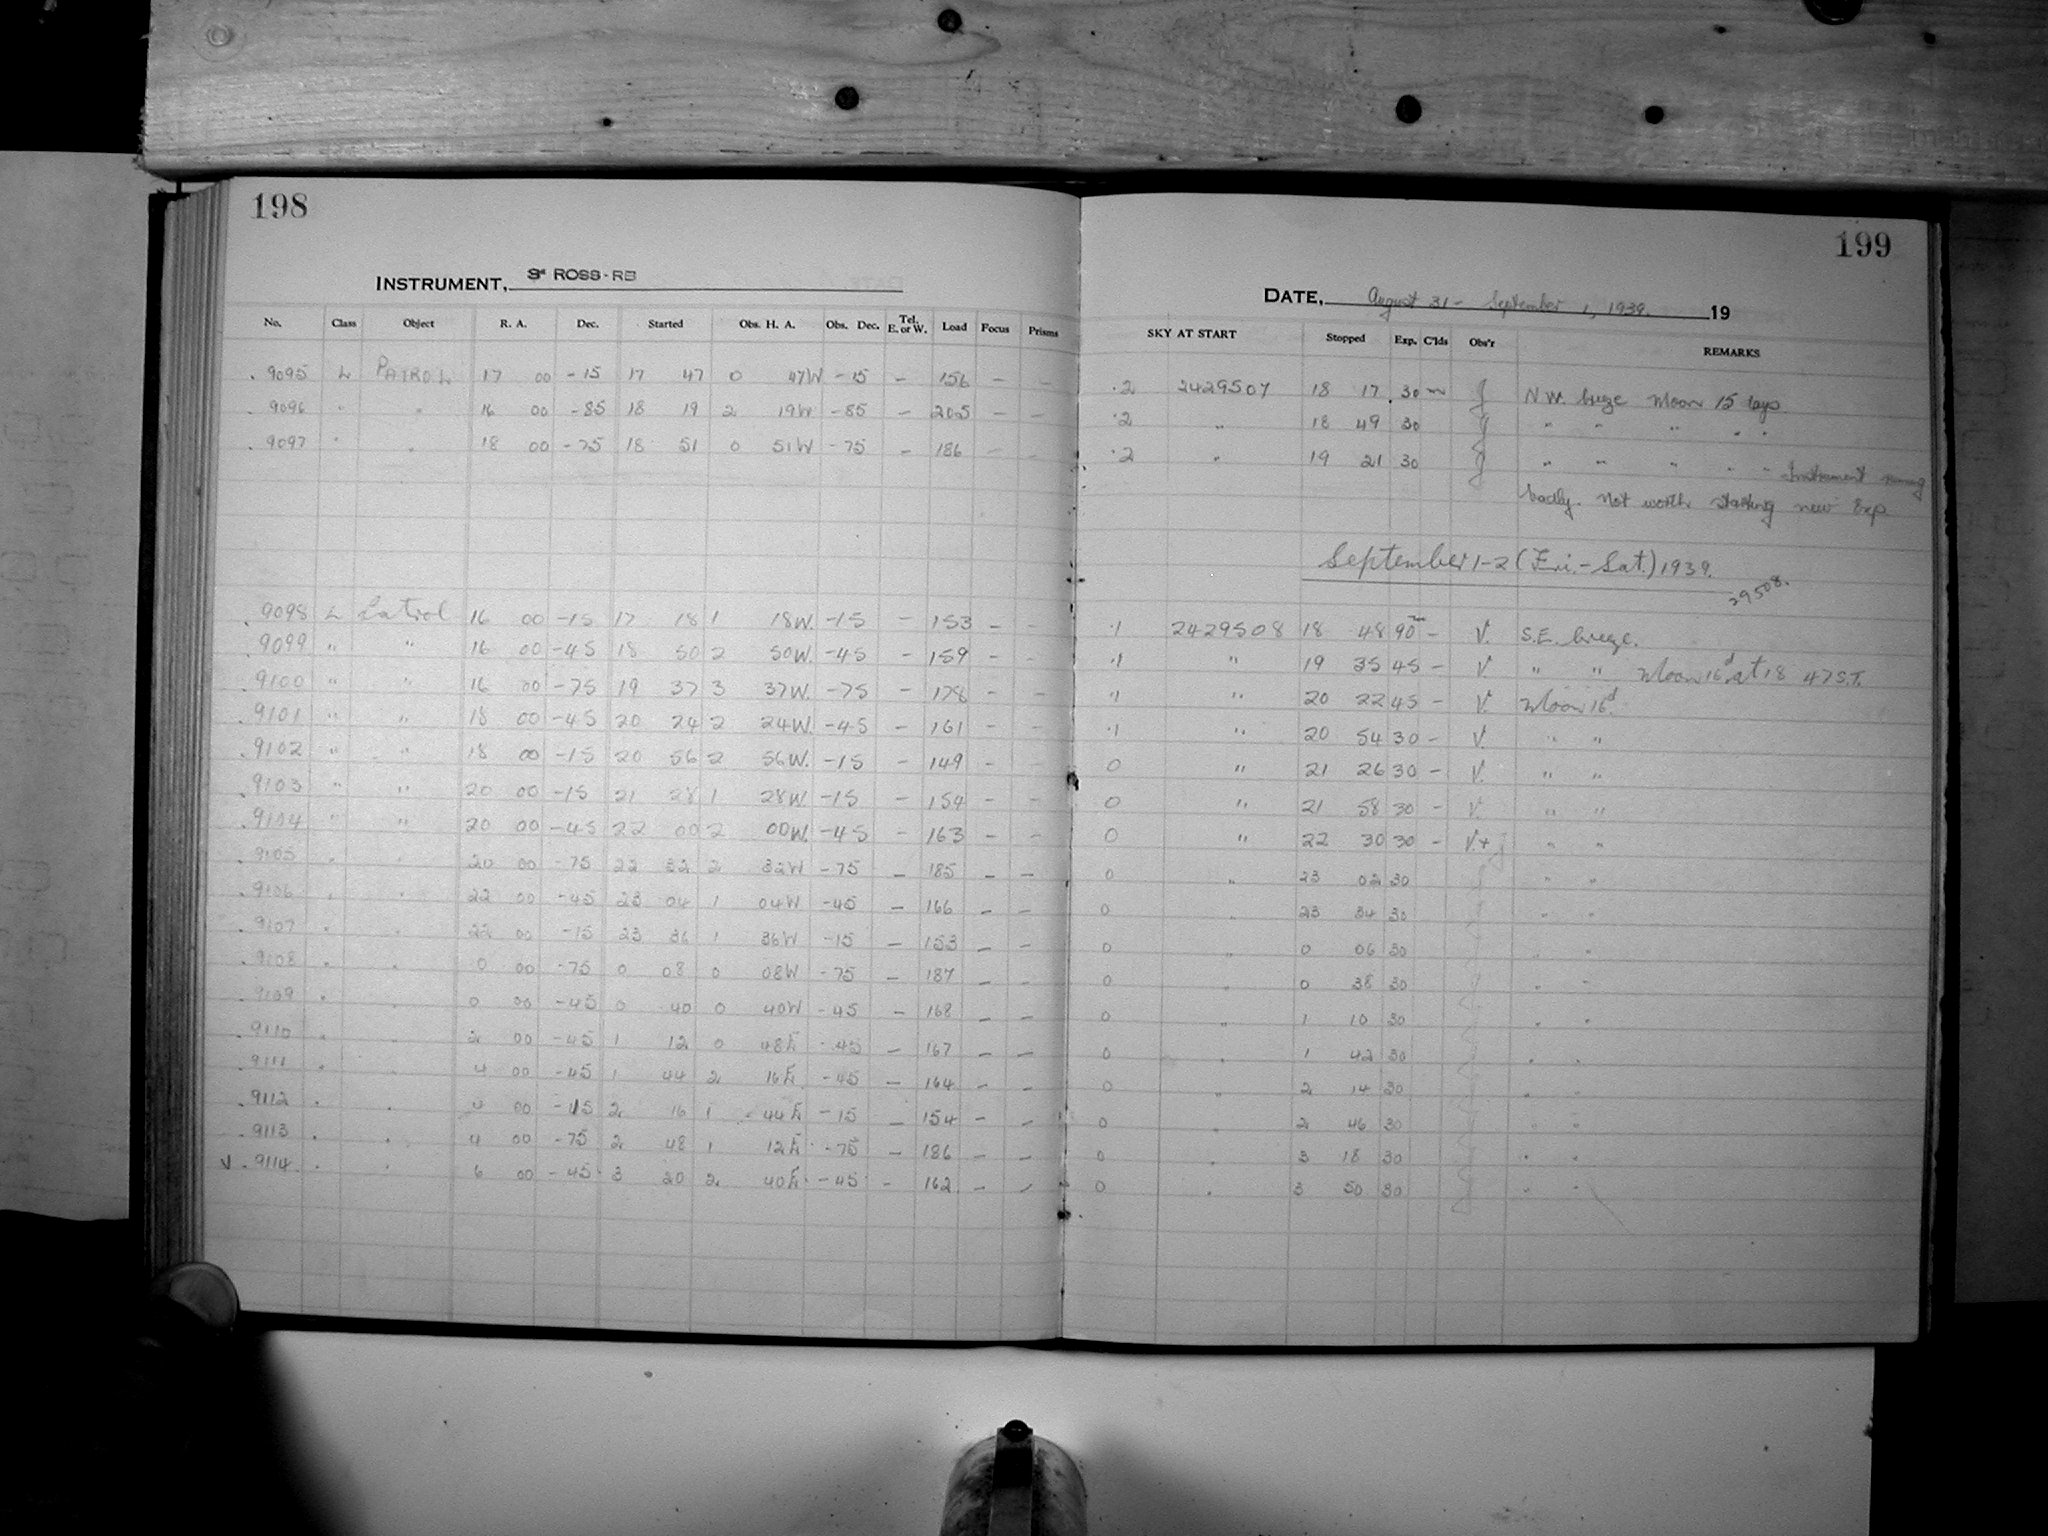 198
INSTRUMENT, 3" ROSS-RB
No. Class Object R. A. Dec. Started Obs. H. A. Obs. Dec. Tel. E. or W. Load Focus Prisms
. 9095 L PATROL 17 00 -15 17 47 0 47W -15 - 156 - -
. 9096 " " 16 00 -85 18 19 2 19W -85 - 205 - -
. 9097 " " 18 00 -75 18 51 0 51W -75 - 186 - -
. 9098 L Patrol 16 00 -15 17 18 1 18W. -15 - 153 - -
. 9099 " " 16 00 -45 18 50 2 50W. -45 - 159 - -
. 9100 " " 16 00 -75 19 37 3 37W. -75 - 178 - -
. 9101 " " 18 00 -45 20 24 2 24W. -45 - 161 - -
. 9102 " " 18 00 -15 20 56 2 56W. -15 - 149 - -
. 9103 " " 20 00 -15 21 28 1 28W. -15 - 154 - -
. 9104 " " 20 00 -45 22 00 2 00W. -45 - 163 - -
. 9105 " " 20 00 -75 22 32 2 32W -75 - 185 - -
. 9106 " " 22 00 -45 23 04 1 04W -45 - 166 - -
. 9107 " " 22 00 -15 23 36 1 36W -15 - 153 - -
. 9108 " " 0 00 -75 0 08 0 08W -75 - 187 - -
. 9109 " " 0 00 -45 0 40 0 40W -45 - 168 - -
. 9110 " " 2 00 -45 1 12 0 48E -45 - 167 - -
. 9111 " " 4 00 -45 1 44 2 16E -45 - 164 - -
. 9112 " " 00 -15 2 16 1 44E -15 - 154 - -
. 9113 " " 4 00 -75 2 48 1 12E -75 - 186 - -
√ . 9114 " " 6 00 -45 3 20 2 40E -45 - 162 - -
199
DATE, August 31 - September 1, 1939. 19
SKY AT START Stopped Exp. C'lds Obs'r REMARKS
.2 2429507 18 17 30 ~ J N.W. breeze Moon 15 days
.2 " 18 49 30 J " " " " "
.2 " 19 21 30 J " " " " " Instrument running
badly. Not worth starting new Exp
September 1-2 (Fri.-Sat.) 1939.
29508.
.1 2429508 18 48 90 - V. S.E. breeze.
.1 " 19 35 45 - V. " " Moon 16d at 18 47 S.T.
.1 " 20 22 45 - V. Moon 16d.
.1 " 20 54 30 - V. " "
0 " 21 26 30 - V. " "
0 " 21 58 30 - V. " "
0 " 22 30 30 - V.+ j " "
0 " 23 02 30 " "
0 " 23 34 30 " "
0 " 0 06 30 " "
0 " 0 38 30 " "
0 " 1 10 30 " "
0 " 1 42 30 " "
0 " 2 14 30 " "
0 " 2 46 30 " "
0 " 3 18 30 " "
0 " 3 50 30 " "